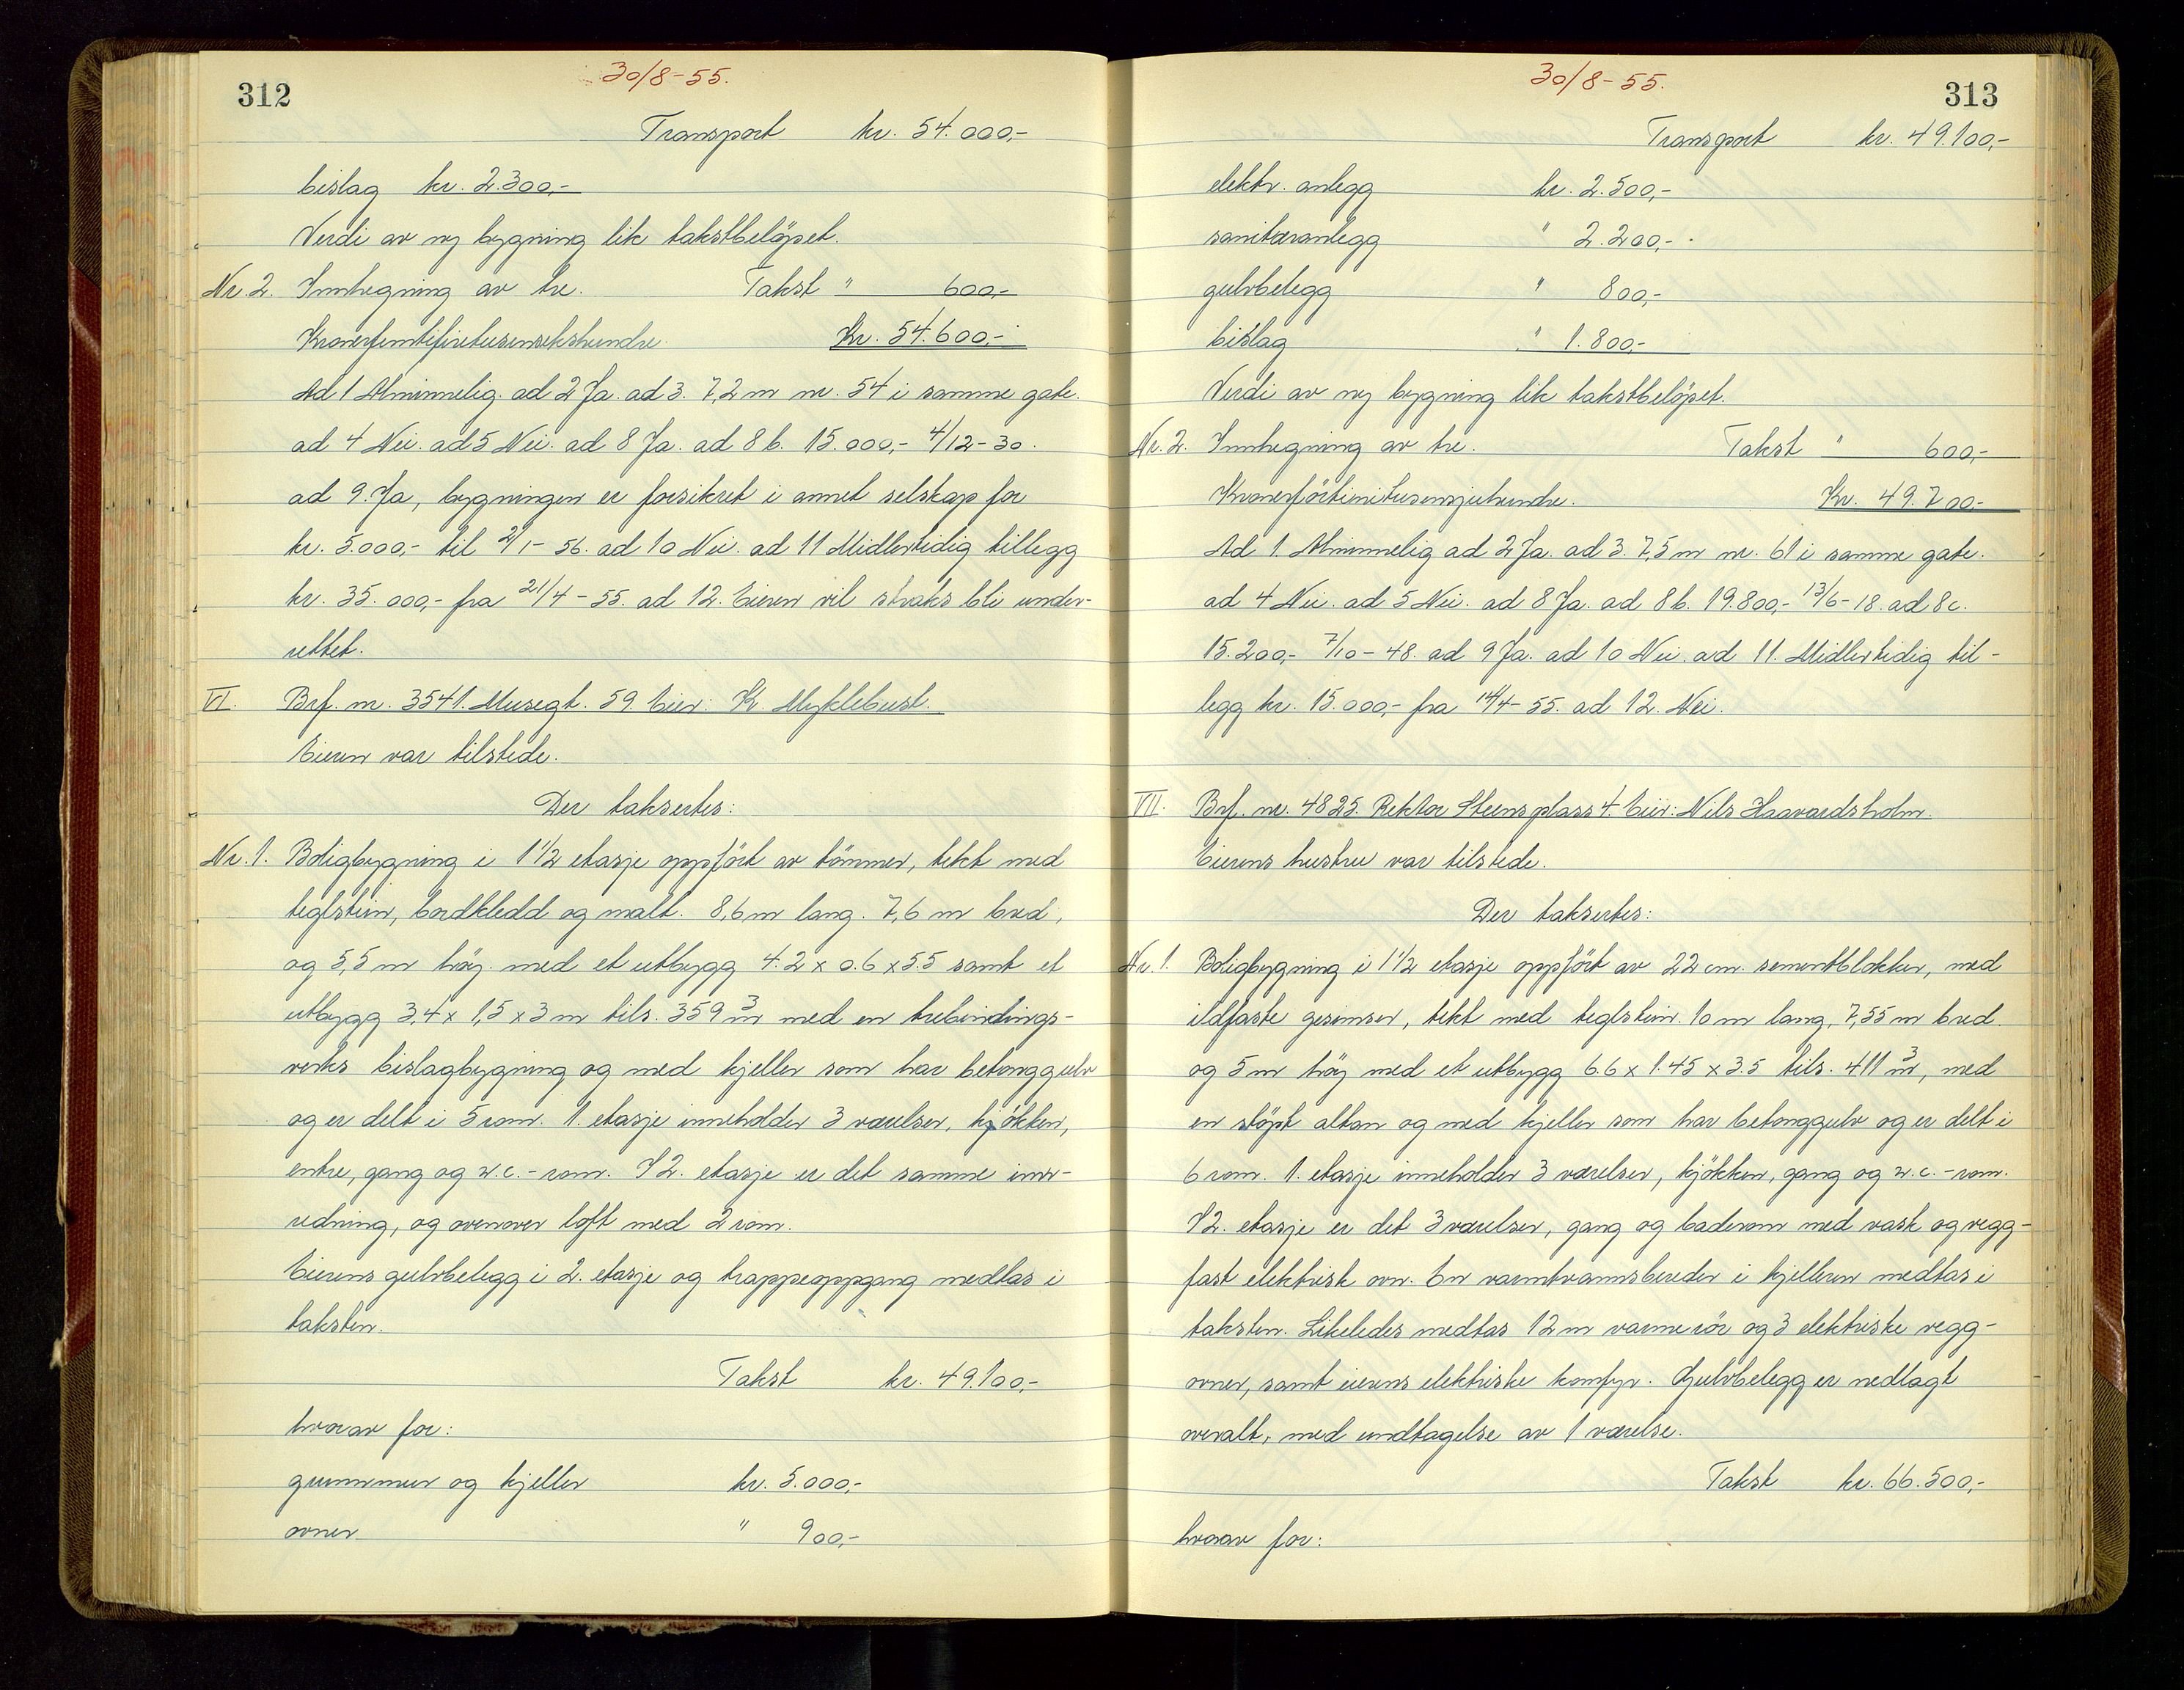 312
30/8-55.
Transport kr. 54.000,-
bislag kr. 2.300,-
Verdi av ny bygning lik takstbelöpet.
Nr. 2. Innhegning av tre. Takst " 600,-
Kronerfemtifiretusensekshundre. Kr. 54.600,-
Ad 1 Alminnelig. ad 2 Ja. ad 3. 7,2 m nr. 54 i samme gate.
ad 4 Nei. ad 5 Nei. ad 8 Ja. ad 8 b. 15.000,- 4/12-30.
ad 9. Ja, bygningen er forsikret i annet selskap for
kr. 5.000,- til 2/1-56. ad 10 Nei. ad 11 Midlertidig tillegg
kr. 35.000,- fra 21/4-55. ad 12. Eieren vil straks bli under-
rettet.
VI. Brf. nr. 3541. Musegt. 59. Eier: K. Myklebust.
Eieren var tilstede.
Der taksertes:
Nr. 1. Boligbygning i 1 1/2 etasje oppfört av tömmer, tekt med
teglstein, bordkledd og malt. 8,6 m lang. 7,6 m bred,
og 5,5 m höy. med et utbygg 4.2 x 0.6 x 5.5 samt et
utbygg 3,4 x 1,5 x 3 m tils. 359 m³ med en trebindings-
verks bislagbygning og med kjeller som har betonggulv
og er delt i 5 rom. 1. etasje inneholder 3 værelser, kjökken,
entre, gang og w.c.-rom. I 2. etasje er det samme inn-
redning, og ovenover loft med 2 rom.
Eierens gulvbelegg i 2. etasje og trappeoppgang medtas i
taksten.
Takst kr. 49.100,-
hvorav for:
grunnmur og kjeller kr. 5.000,-
ovner " 900,-
313
30/8-55.
Transport kr. 49.100,-
elektr. anlegg kr. 2.500,-
sanitæranlegg " 2.200,-
gulvbelegg " 800,-
bislag " 1.800,-
Verdi av ny bygning lik takstbelöpet.
Nr. 2. Innhegning av tre. Takst " 600,-
Kronerförtinitusensjuhundre. Kr. 49.700,-
Ad 1. Alminnelig ad 2 Ja. ad 3. 7,5 m nr. 61 i samme gate.
ad 4 Nei. ad 5 Nei. ad 8 Ja. ad 8 b. 19.800,- 13/6-18. ad 8c.
15.200,- 7/10-48. ad 9 Ja. ad 10 Nei. ad 11. Midlertidig til-
legg kr. 15.000,- fra 14/4-55. ad 12. Nei.
VII. Brf. nr. 4825. Rektor Steens plass 4. Eier: Nils Haavardsholm.
Eierens hustru var tilstede.
Der taksertes:
Nr. 1. Boligbygning i 1 1/2 etasje oppfört av 22 cm. sementblokker, med
ildfaste gesimser, tekt med teglstein. 10 m lang, 7,55 m bred.
og 5 m höy med et utbygg 6.6 x 1.45 x 3.5 tils. 411 m³, med
en stöpt altan og med kjeller som har betonggulv og er delt i
6 rom. 1. etasje inneholder 3 værelser, kjökken, gang og w.c.-rom.
I 2. etasje er det 3 værelser, gang og baderom med vask og vegg-
fast elektrisk ovn. En varmtvannsbereder i kjelleren medtas i
taksten. Likeledes medtas 12 m varmerör og 3 elektriske vegg-
ovner, samt eierens elektriske komfyr. Gulvbelegg er nedlagt
overalt, med undtagelse av 1 værelse.
Takst kr. 66.500,-
hvorav for: